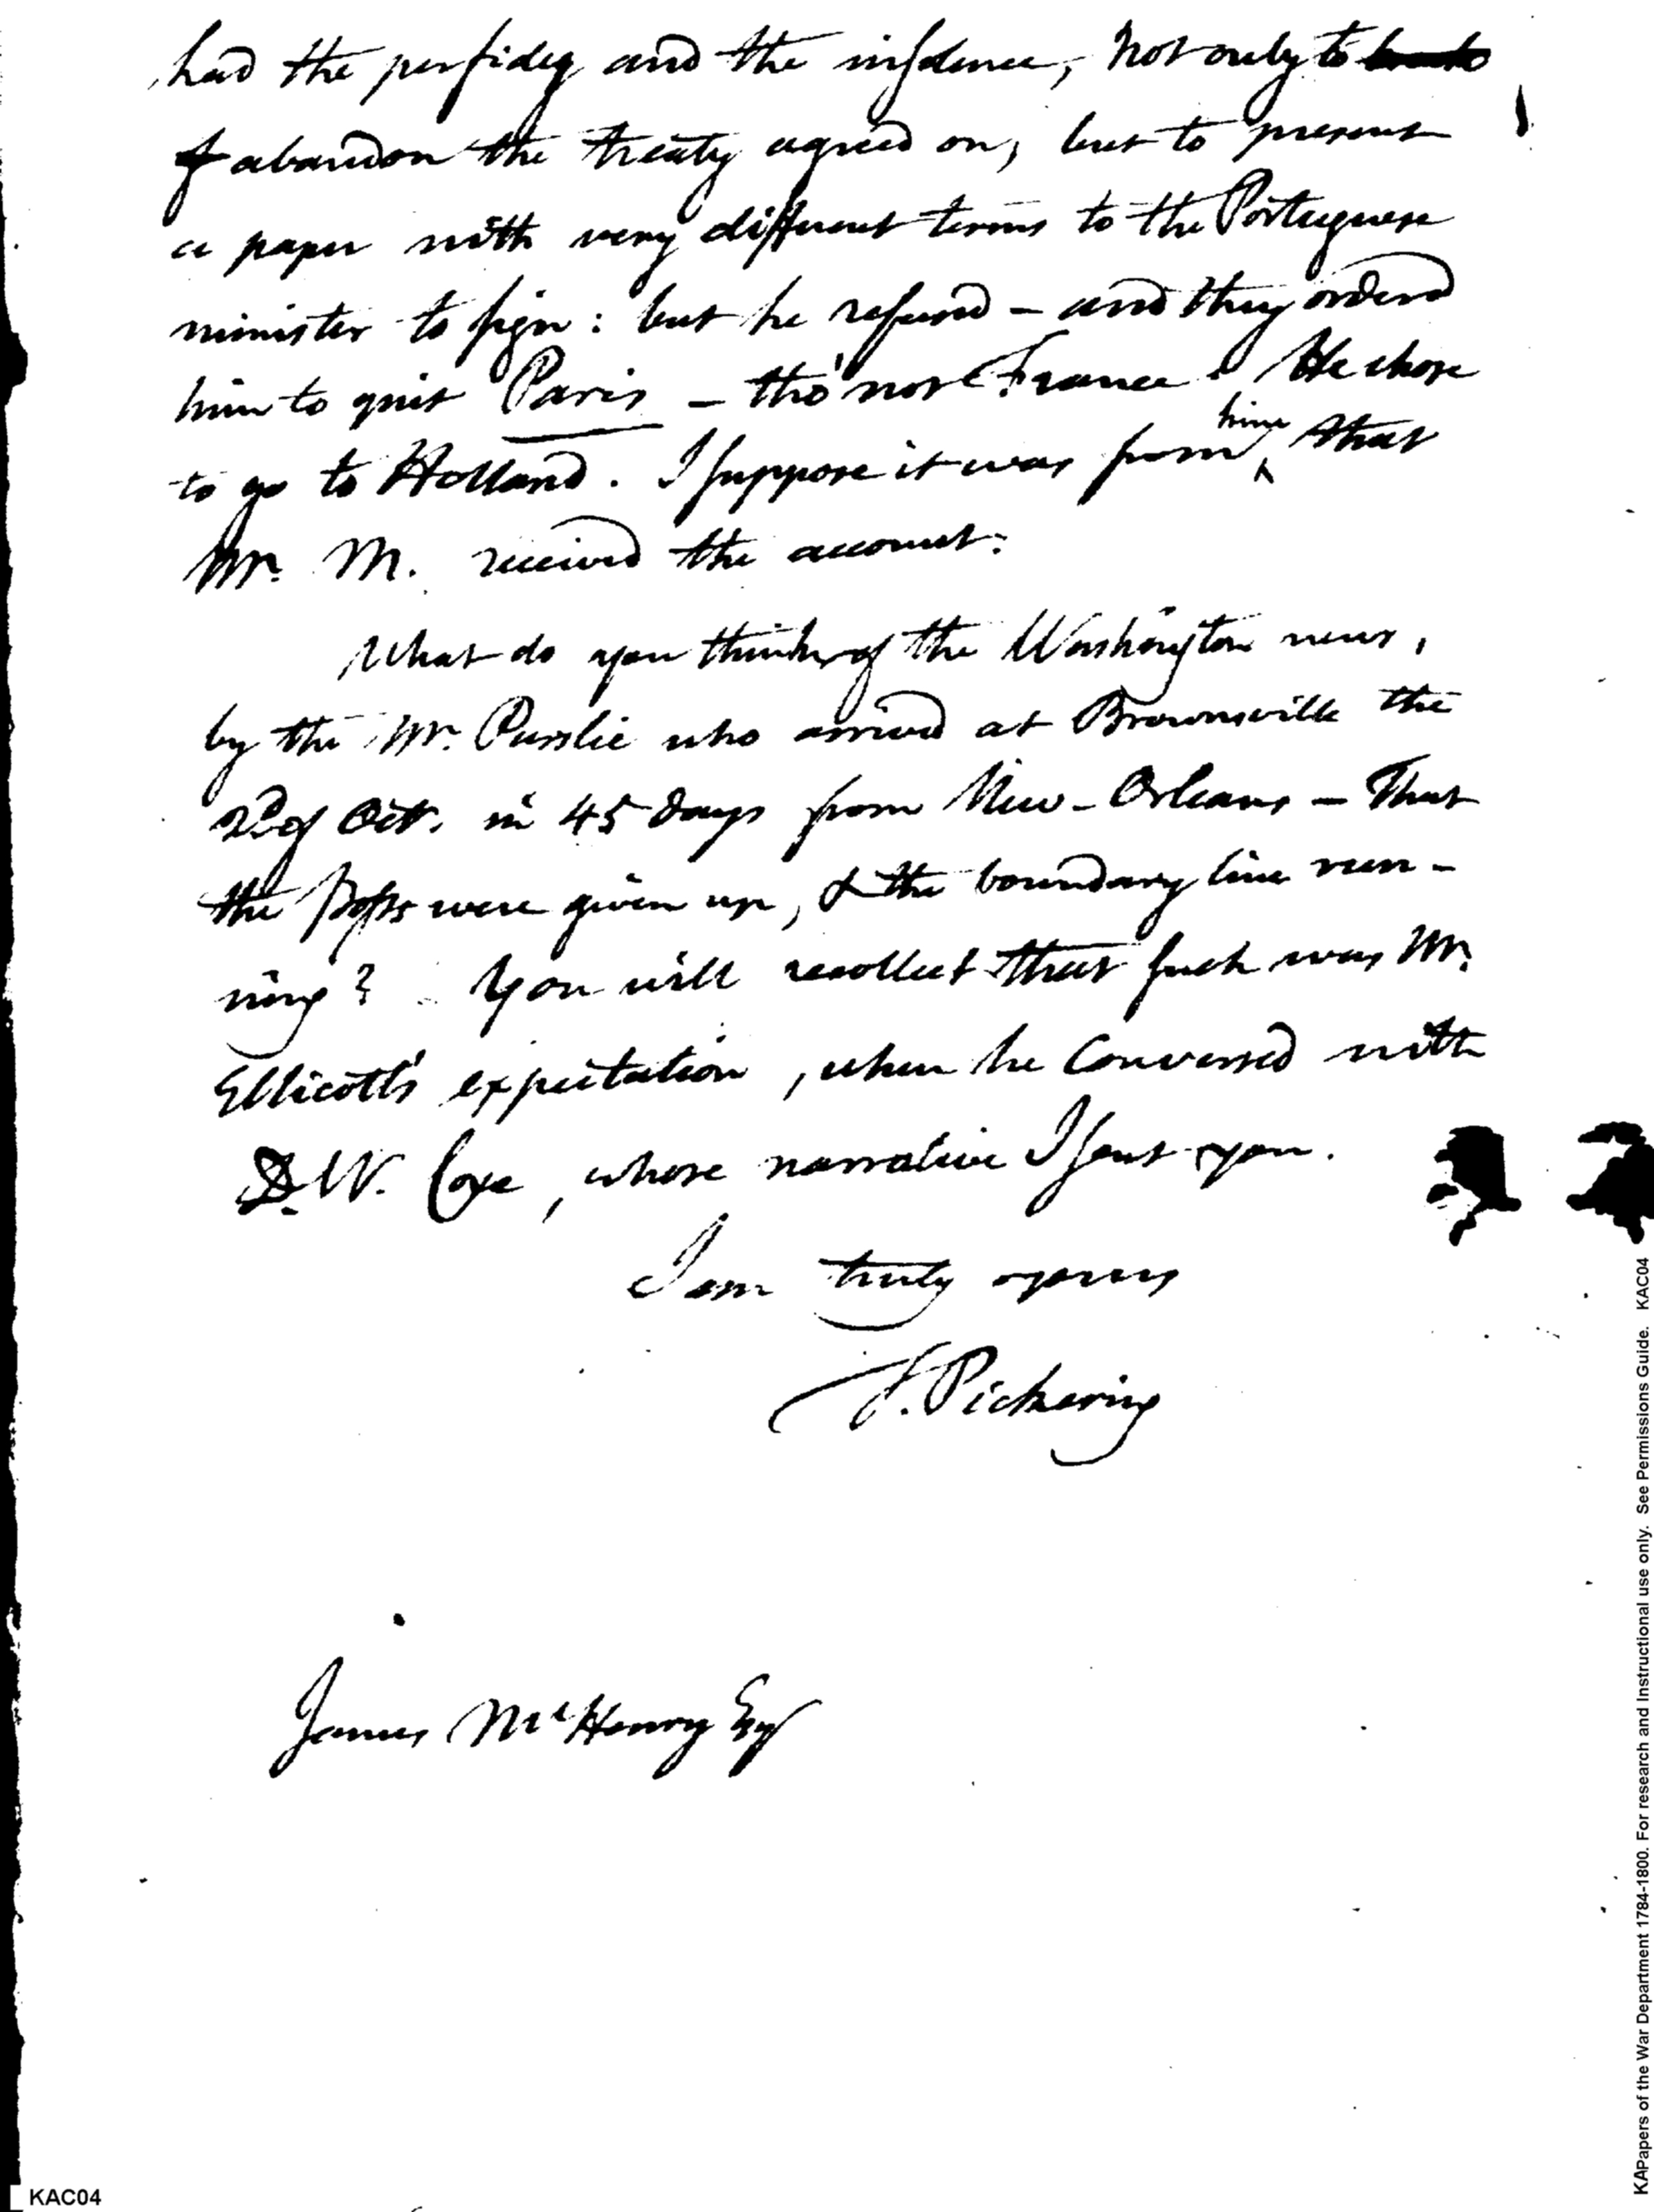 had the perfidy and the insolence, not only to
abandon the treaty agreed on, but to present
a paper with very different terms to the Portuguese
minister to sign: but he refused – and they ordered
him to quit Paris – tho' not France. He chose
to go to Holland. I suppose it was from him that
Mr. M. received the account.
What do you think of the Washington news,
by the Mr. Purslie who arrived at Brownsville the
2d of Oct. in 45 days from New-Orleans – That
the Posts were given up, & the boundary line run-
ning? You will recollect that such was Mr.
Ellicott's expectation, when he conversed with
D. W. Coxe, whose narrative I sent you.
I am truly yours
T. Pickering
James McHenry Esq
KAC04
KAPapers of the War Department 1784-1800. For research and Instructional use only. See Permissions Guide. KAC04